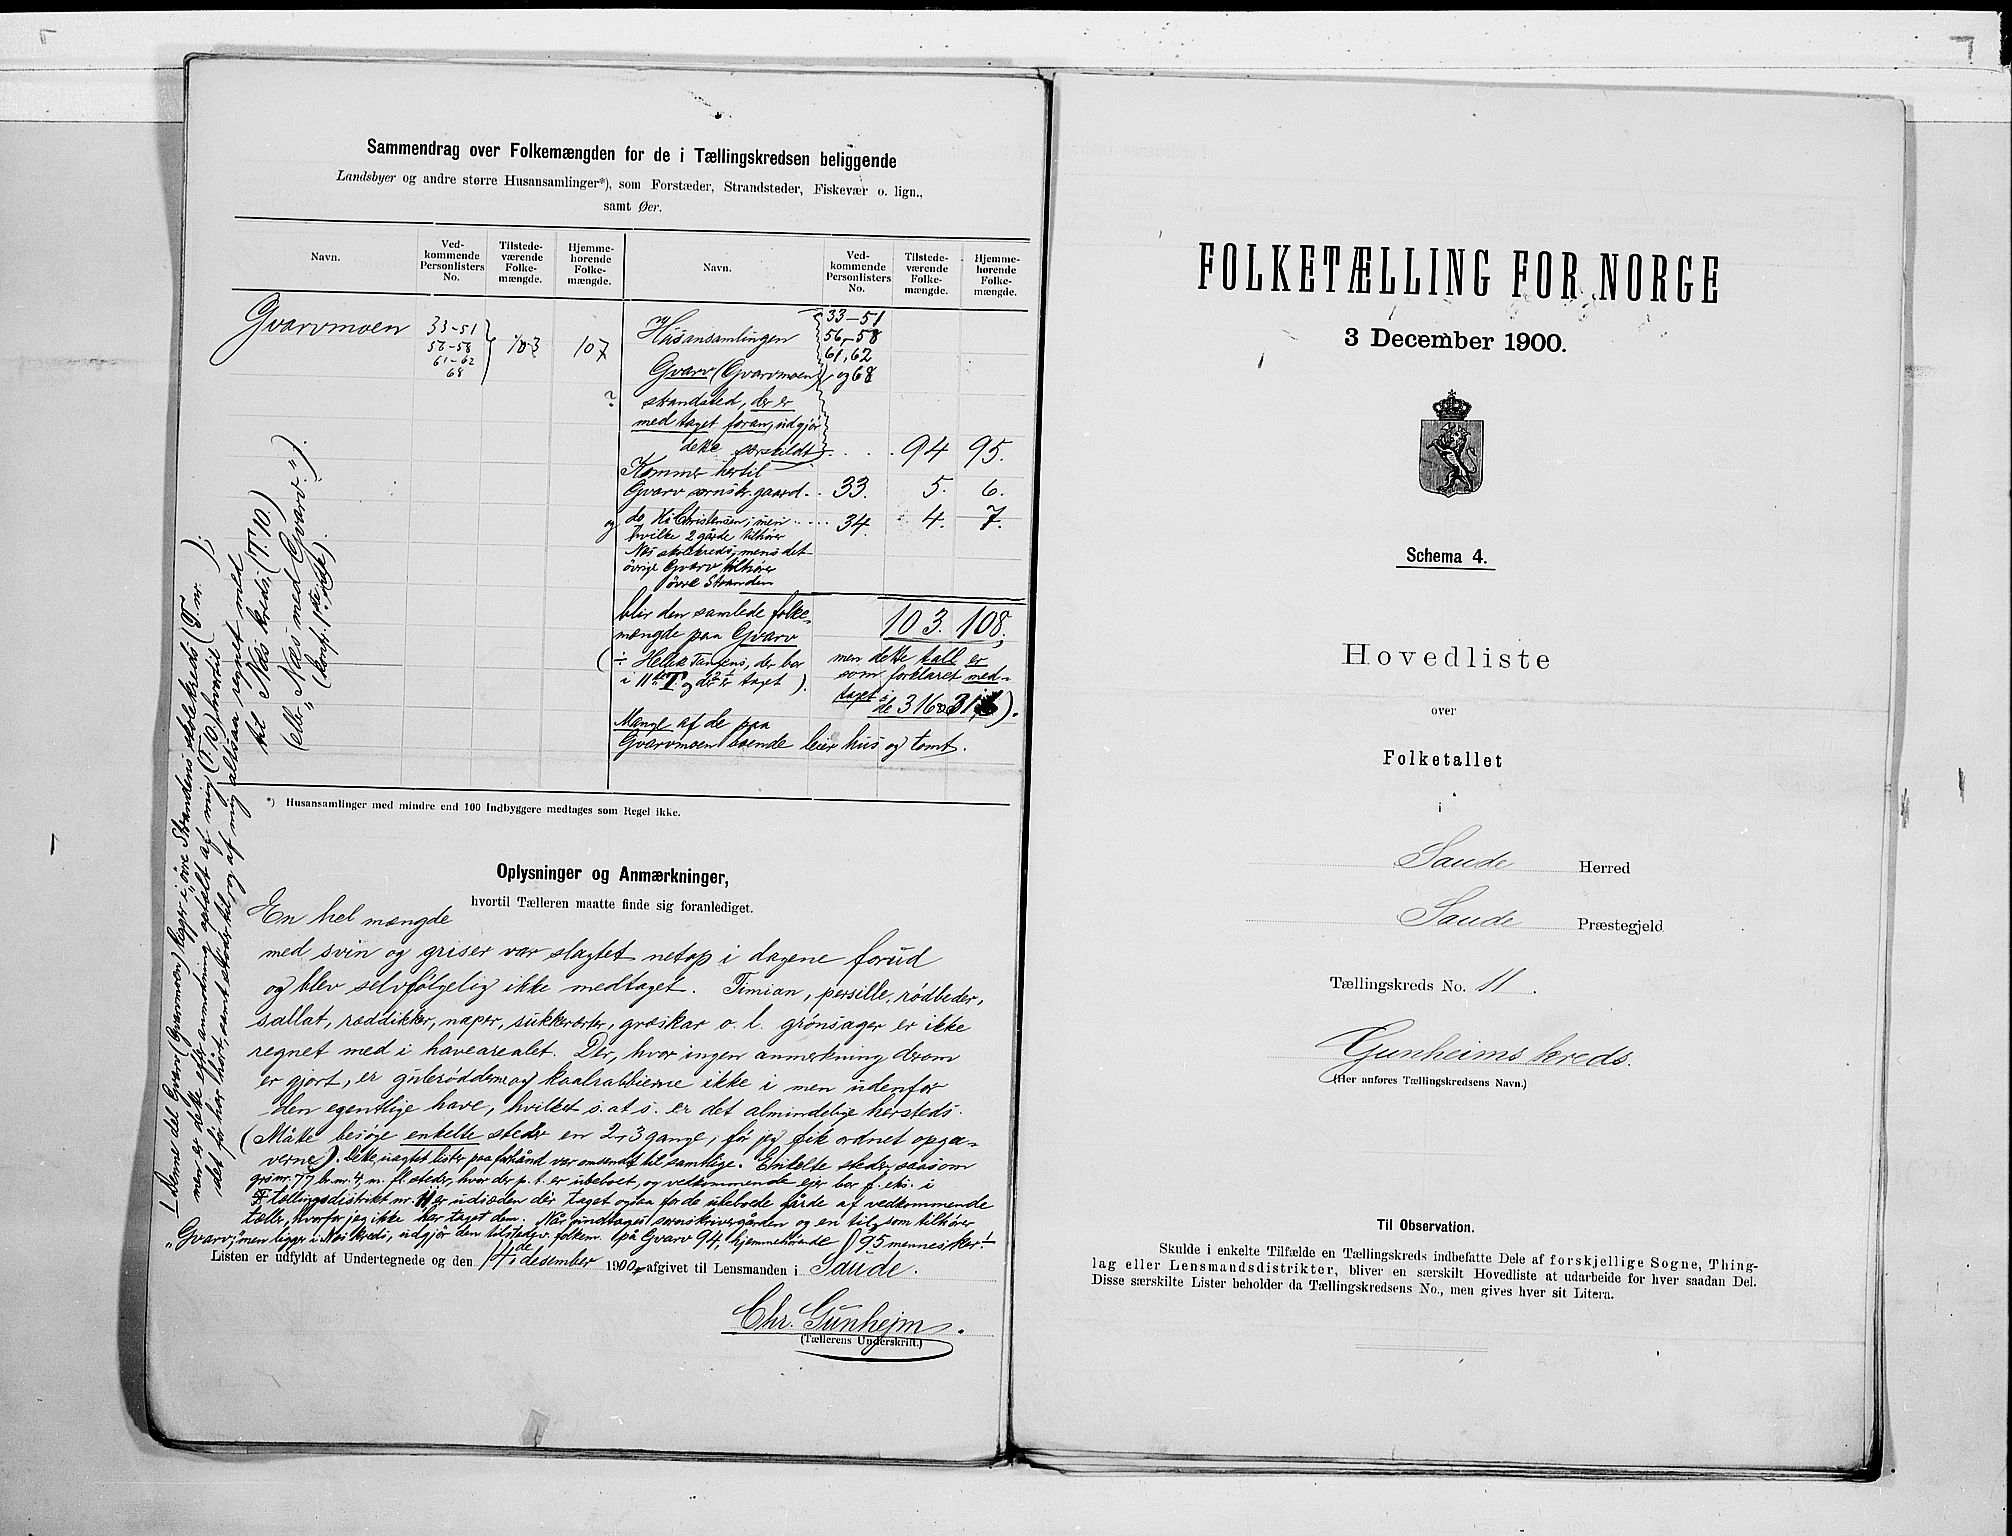 Sammendrag over Folkemængden for de i Tællingskredsen beliggende
Landsbyer og andre større Husansamlinger*), som Forstæder, Strandsteder, Fiskevær o. lign.,
samt Øer.
Navn.
Ved-
kommende
Personlisters
No.
Tilstede-
værende
Folke-
mængde.
Hjemme-
hørende
Folke-
mængde.
Navn.
Ved-
kommende
Personlisters
No.
Tilstede-
værende
Folke-
mængde.
Hjemme-
hørende
Folke-
mængde.
Gvarvmoen
33-51
56-58
61-62
68
103
107
Husansamlingen
Gvarv (Gvarvmoen)
33-51
56-58
61, 62
og 68
? strandsted, der er
med taget foran, udgjör
dette særskildt . . . 94 95.
Kommer hertil
Gvarv sornskr. gaard . . 33. 5. 6.
og do H. Christensen; men . . . . 34. 4. 7.
hvilke 2 gårde tilhører
Næs skolekreds, mens det
øvrige Gvarv tilhører
øvre Stranden
blir den samlede folke-
mængde paa Gvarv
103. 108,
(÷ Helek Tangens, der bor
i 11te T. og der er taget).
men dette tall er
som forklaret med-
taget i
de 316 og 31 ).
Mange af de paa
Gvarvmoen boende leier hus og tomt.
*) Husansamlinger med mindre end 100 Indbyggere medtages som Regel ikke.
1 Denne del Gvarv (Gvarvmoen) ligger i øvre Strandens skolekreds (T. nr. );
men er dette efter anmodning optalt af mig (T 10) hvortil
det før har hørt, samt støder til, og af mig altsaa regnet med
til Næs kreds (T. 10.)
(eller „Næs med Gvarv“).
(Confr. 1ste side).
Oplysninger og Anmærkninger,
hvortil Tælleren maatte finde sig foranlediget.
En hel mængde
med svin og griser var slagtet netop i dagene forud
og blev selvfølgelig ikke medtaget. Timian, persille, rödbeder,
sallat, ræddikker, næper, sukkerærter, græskar o. l. grönsager er ikke
regnet med i havearealet. Der, hvor ingen anmerkning derom
er gjort, er gulerødderne og kaalrabbierne ikke i men udenfor
den egentlige have, hvilket s. at s. er det almindelige hersteds.
(Måtte besøge enkelte steder en 2, 3 gange, før jeg fik ordnet opga-
verne). Dette, uagtet lister paa forhånd var omsendt til samtlige. Enkelte steder, saasom
grsnr. 77 br. nr. 4, m. fl. steder, hvor der p. t. er ubeboet, og vedkommende eier bor f. eks. i
tællingsdistrikt nr. 11 er udsæden der taget ogsaa for de ubeboede gårde af vedkommende
tæller, hvorfor jeg ikke har taget dem. Når undtages sornskrivergården og en til, som tilhører
„Gvarv“; men ligger i Næs kreds, udgjør den tilstedev. folkem. på Gvarv 94, hjemmehørende 95 mennesker.
Listen er udfyldt af Undertegnede og den 14de desember 1900 afgivet til Lensmanden i Saude.
Chr. Gunheim.
(Tællerens Underskrift.)
FOLKETÆLLING FOR NORGE
3 December 1900.
Schema 4.
Hovedliste
over
Folketallet
i
Saude Herred
Saude Præstegjeld
Tællingskreds No. 11.
Gunheims kreds.
(Her anføres Tællingskredsens Navn.)
Til Observation.
Skulde i enkelte Tilfælde en Tællingskreds indbefatte Dele af forskjellige Sogne, Thing-
lag eller Lensmandsdistrikter, bliver en særskilt Hovedliste at udarbeide for hver saadan Del.
Disse særskilte Lister beholder da Tællingskredsens No., men gives hver sit Litera.